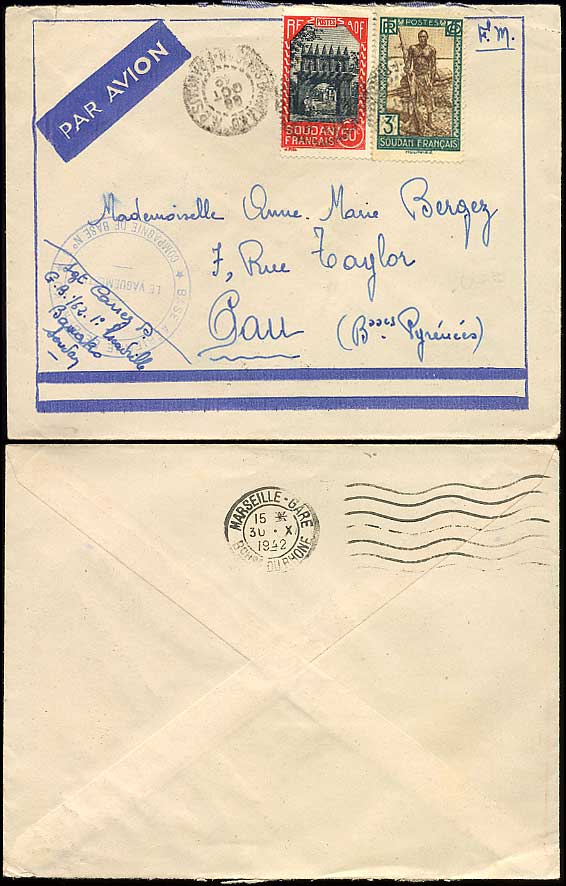 PAR AVION
F.M.
POSTES AOF
SOUDAN FRANÇAIS 50c
RF POSTES
3F
SOUDAN FRANÇAIS
Mademoiselle Anne-Marie Bergez
7, Rue Taylor
Pau (Bsses Pyrénées)
COMPAGNIE DE BASE N°
LE VAGUEMESTRE
Sgt
Bamako
Soudan
MARSEILLE-GARE
15
30 · X
1942
BCHES DU RHONE